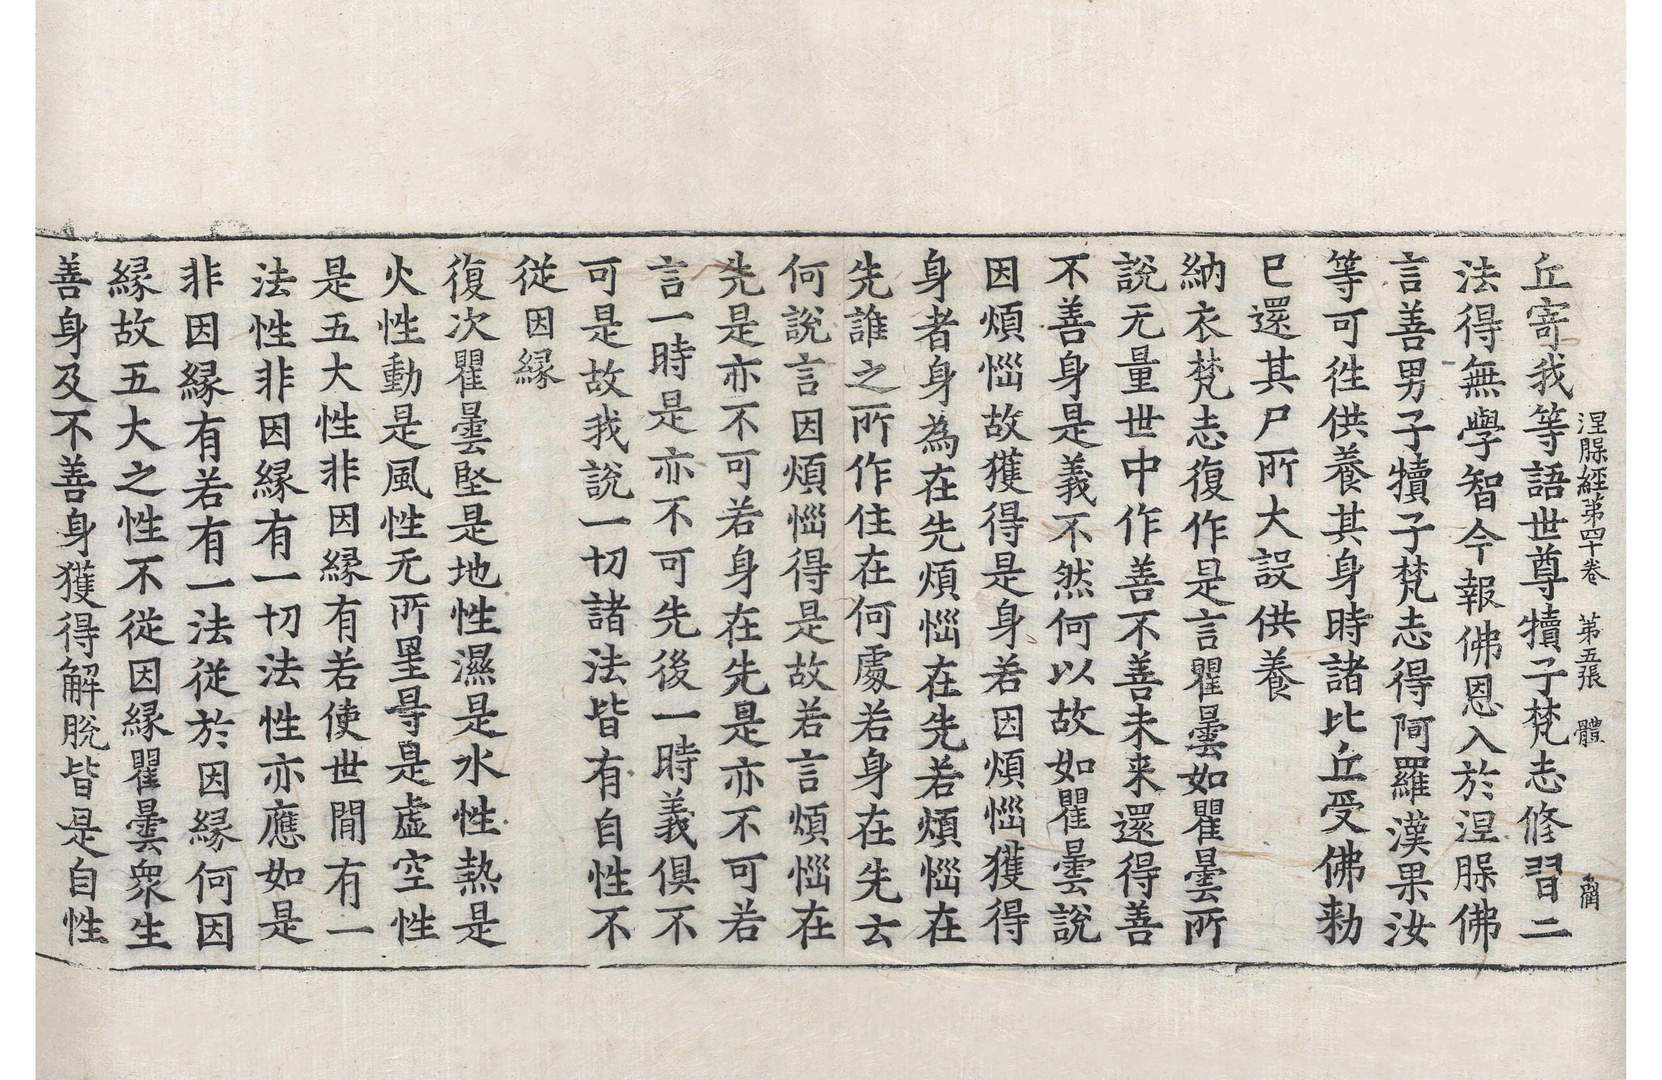 涅槃經第四十卷 第五張 體
丘寄我等語世尊犢子梵志修習二
法得無學智今報佛恩入於涅槃佛
言善男子犢子梵志得阿羅漢果汝
等可徃供養其身時諸比丘受佛勑
已還其尸所大設供養
納衣梵志復作是言瞿曇如瞿曇所
說无量世中作善不善未来還得善
不善身是義不然何以故如瞿曇說
因煩惱故獲得是身若因煩惱獲得
身者身為在先煩惱在先若煩惱在
先誰之所作住在何處若身在先云
何說言因煩惱得是故若言煩惱在
先是亦不可若身在先是亦不可若
言一時是亦不可先後一時義俱不
可是故我說一切諸法皆有自性不
從因縁
復次瞿曇堅是地性濕是水性熱是
火性動是風性无所罣㝵是虛空性
是五大性非因縁有若使世間有一
法性非因縁有一切法性亦應如是
非因縁有若有一法從於因縁何因
縁故五大之性不從因縁瞿曇衆生
善身及不善身獲得解脫皆是自性